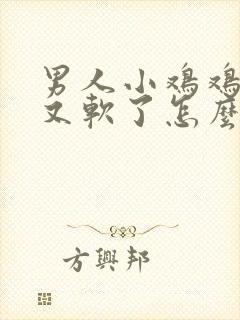 男人小鸡鸡
又軟了怎麼
方興邦